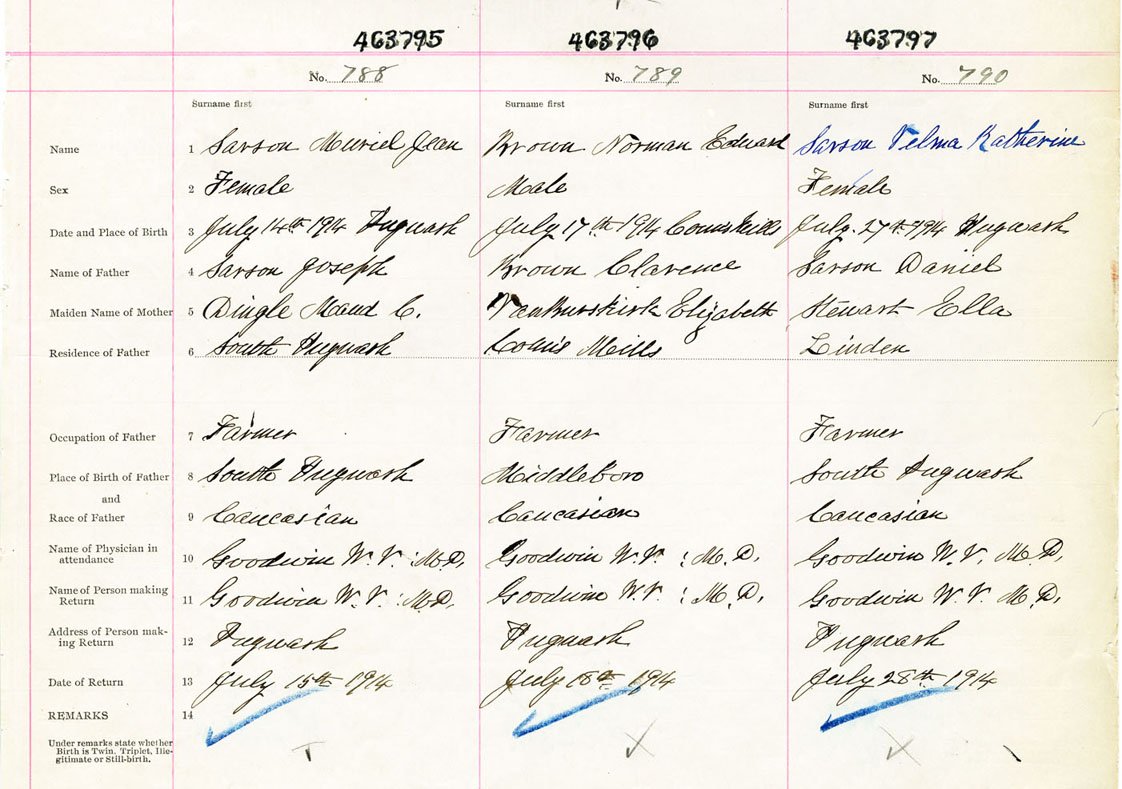 463795 463796 463797
No. 788 No. 789 No. 790
Surname first Surname first Surname first
Name 1 Sarson Muriel Jean Brown Norman Edward Sarson Velma Katherine
Sex 2 Female Male Female
Date and Place of Birth 3 July 14th 1914 Pugwash July 17th 1914 July 27th 1914 Pugwash
Name of Father 4 Sarson Joseph Brown Clarence Sarson Daniel
Maiden Name of Mother 5 Dingle Maud C. VanBuskirk Elizabeth Stewart Ella
Residence of Father 6 South Pugwash Mills Linden
Occupation of Father 7 Farmer Farmer Farmer
Place of Birth of Father 8 South Pugwash Middleboro South Pugwash
and
Race of Father 9 Caucasian Caucasian Caucasian
Name of Physician in
attendance 10 Goodwin W. V. : M.D. Goodwin W. V. : M.D. Goodwin W. V. M.D.
Name of Person making
Return 11 Goodwin W. V. : M.D. Goodwin W. V. : M.D. Goodwin W. V. M.D.
Address of Person mak-
ing Return 12 Pugwash Pugwash Pugwash
Date of Return 13 July 15th 1914 July 18th 1914 July 28th 1914
REMARKS 14
Under remarks state whether
Birth is Twin. Triplet, Ille-
gitimate or Still-birth.